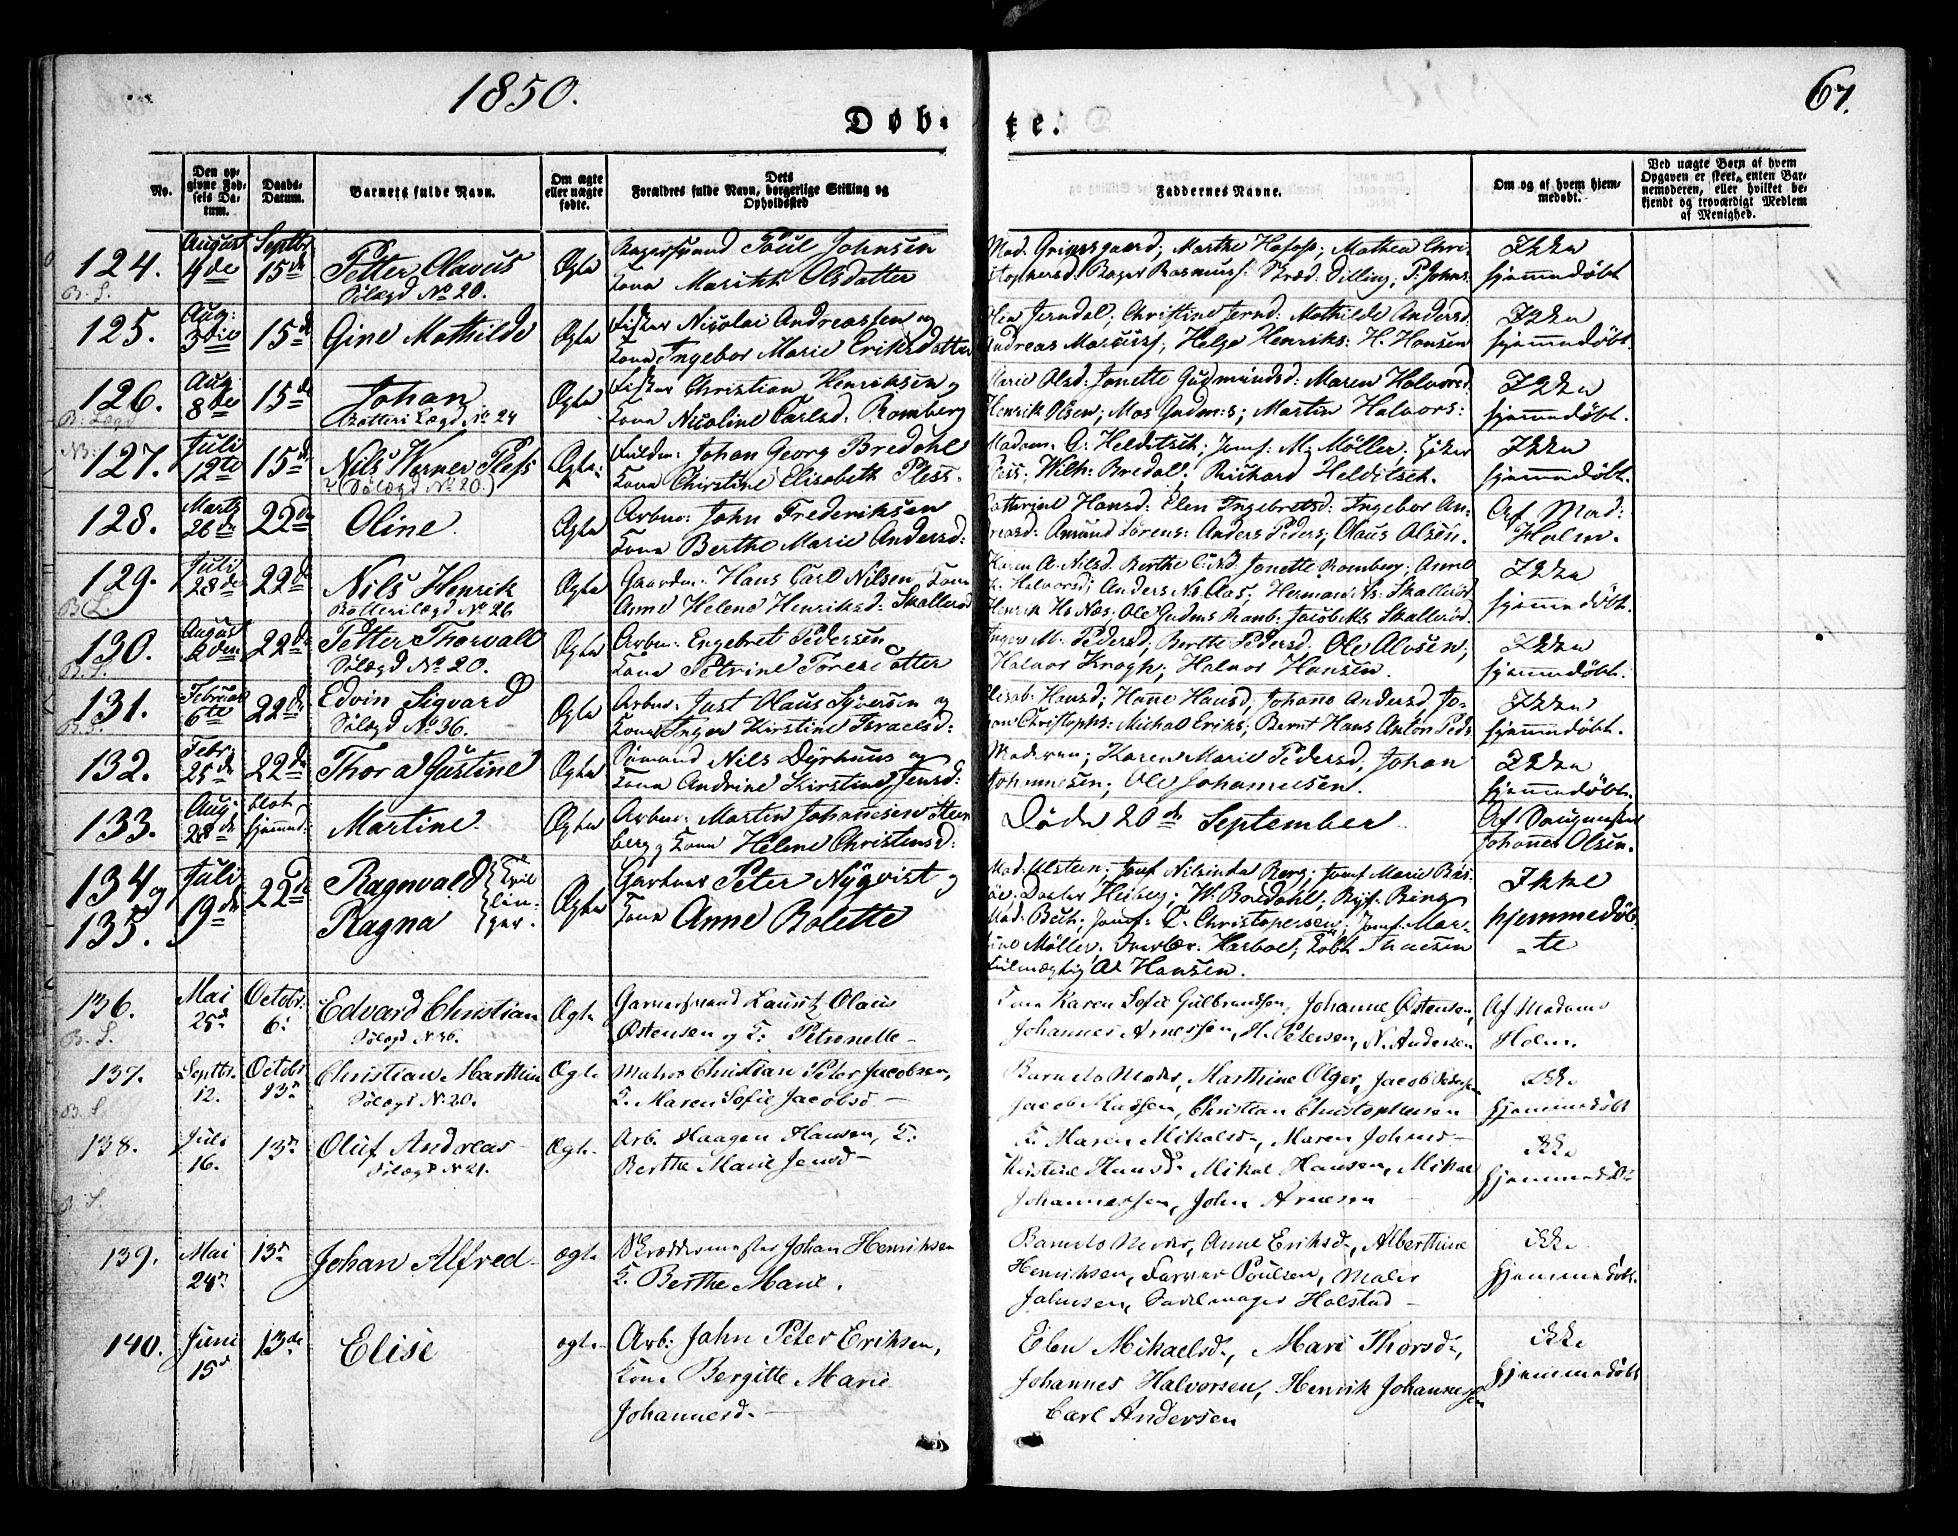 1850.
67.
Døb-te.
No.
Den op-
givne Fød-
sels Da-
tum.
Daabs-
Datum.
Barnets fulde Navn.
Om ægte
eller uægte
fødte.
Dets
Forældres fulde Navn, borgerlige Stilling og
Opholdssted
Faddernes Navne.
Om og af hvem hjem-
medøbt.
Ved uægte Børn af hvem
Opgaven er skeet, enten Bar-
nemoderen, eller hvilket be-
kjendt og troværdigt Medlem
af Menighed.
124.
B. L.
August
4de
Septbr
15de
Petter Olavus
Sølægd No 20.
Ægte
Poul Johnsen
Kone Marithe Olsdatter
Mad. Grimsgaard; Marthe Mathea Chri-
stophersd: Dilling; P: Johns:
Ikke
hjemmedøbt
125.
Aug:
3die
15de
Gine Mathilde
Ægte
Fisker Nicolai Andreassen og
Kone Ingebor Marie Eriksdatter
Christine Jernd: Mathilde Andersd.
Andreas Helge Henriks: H. Hansen
Ikke
hjemmedøbt.
126.
B: Lægd
Aug:
8de
15de
Johan.
Rotteri Lægd No 24
Ægte
Fisker Christian Henriksen og
Kone Nicoline Carlsd: Romberg
Marie Olsd: Jonette Gudmundsd: Maren Halvorsd.
Henrik Olsen; Martin Halvors:
Ikke
hjemmedøbt.
NB:
127.
Juli
12te
15de
Nils Werner Pless
(Sølægd No 20.)
Ægte
Fuldm: Johan Georg Bredahl
Kone Christine Elisabeth Pless.
Madam: A: Helditsch; Jomf: M: Möller;
Pless; Wilh: Bredal; Richard Helditsch.
Ikke
hjemmedøbt.
128.
Marts
26de
22de
Oline
Ægte
Arbm: John Frederiksen
Kone Berthe Marie Andersd:
Cathrine Hansd: Elen Ingebretsd: Ingebor An-
dreasd: Amund Sörens: Anders Peders; Olaus Olsen.
Af Mad:
Holm.
129.
B. L.
Juli
28de
22de
Nils Henrik
Rotterilægd No 26
Ægte
Gaardm: Hans Carl Nilsen, Kone
Anne Helene Henriksd: Skallerød
Karen A. Nilsd. Berthe Jonette Romberg; Anne
Halvorsd; Anders Ns Aas; Herman Ns: Skallerød
Henrik Hs Næs; Ole Gudms Romb: Jacob Skallerød.
Ikke
hjemmedøbt.
130.
B. L.
August
2den
22de
Petter Thorvall
Sølægd No 20.
Ægte
Arbm: Engebret Pedersen
Kone Petrine Toresdatter
Inger M. Pedersd, Berthe Pedersd: Ole Olsen;
Halvor Krogh; Halvor Hansen.
Ikke
hjemmedøbt.
131.
B. L.
Februar
6te
22de
Edvin Sigvard
Sølægd No 36.
Ægte
Arbm: Just Olaus Syversen og
Kone Inger Kirstine Israelsd:
Elisab: Hansd; Hanne Hansd, Johanne Andersd, Jo-
han Christophs: Michal Eriks; Bernt Hans Anton Peds
Ikke
hjemmedøbt.
132.
Febr:
25de
22de
Thora Justine
Ægte
Sømand Nils Dyrhuus og
Kone Andrine Kirstine Jensd:
Moderen; Karen Marie Pedersd, Johan
Johannesen; Ole Johannesen.
Ikke
hjemmedøbt.
133.
Aug:
28de
blot
hjemmd:
Martine
Ægte
Arbm: Martin Johannesen Steen
berg og Kone Helene Christensd:
Døde 20de September
Johannes Olsen.
134 og
135.
Juli
19de
22de
Ragnvald
Ragna
Tvil
lin-
ger.
Ægte
Gartner Peter Nyqvist og
Kone Anne Bolette
Mad. Ulsten; Jomf Nilsinke Berg; Jomf Marie
Doctor Heiberg; W. Bredahl; Byf. Bing
Mad: Bech; Jomf: C. Christophersen; Jomf: Mar-
tine Möller; Harboe; Thaesen
fulmægtig A. Hansen.
Ikke
hjemmedøb
-te
136.
B. L.
Mai
25d
Octobr.
6:
Edvard Christian
Sølægd N. 36.
Ægte
Garversvend Lauritz Olaus
Østensen og K: Petrunelle
Kone Karen Sofie Gulbrandsen, Johanne Østensen,
Johannes Arnessen, H. Petersen, N. Andersen
Af Madame
Holm.
137.
B. L.
Septbr.
12.
Octobr
13de
Christian Marthin
Sølægd N. 20.
Ægte
Maler Christian Peter Jacobsen,
K. Maren Sofie Jacobsd
Barnets Moder, Marthine Olger, Jacob Pedersen
Jacob Madsen, Christian Christophersen
Ikke
hjemmedøbt
138.
B. L.
Juli
16.
13de
Oluf Andreas
Sølægd N 21.
Ægte
Arb. Haagen Hansen, K:
Berthe Marie Jensd
K. Maren Mikalsd, Maren Johnsd
Kirstine Hansd, Mikal Hansen, Mikal
Johannessen, John Arnesen
Ikke
hjemmedøbt
139.
Mai
24de
13de
Johan Alfred
ægte
Skræddermester Johan Henriksen
K. Berthe Marie.
Barnets Moder, Anne Eriksd, Alberthine
Henriksen, Farver Poulsen, Maler
Jahnsen, Sadelmager Holstad
ikke
hjemmedøbt.
140.
Juni
15d
13de
Elise
ægte
Arb: Jahn Peter Eriksen,
Kone Bergitte Marie
Johannesd.
Elen Mikaelsd, Mari Thorsd,
Johannes Halvorsen, Henrik Johannesen
Carl Andersen
ikke
hjemmedøbt